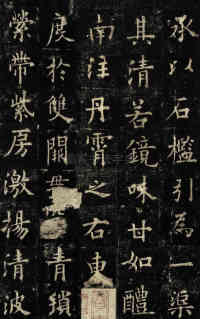 承以石檻引為一渠
其清若鏡味甘如醴
南注丹霄之右東
度於雙闕 青瑣
縈帶紫房激揚清波